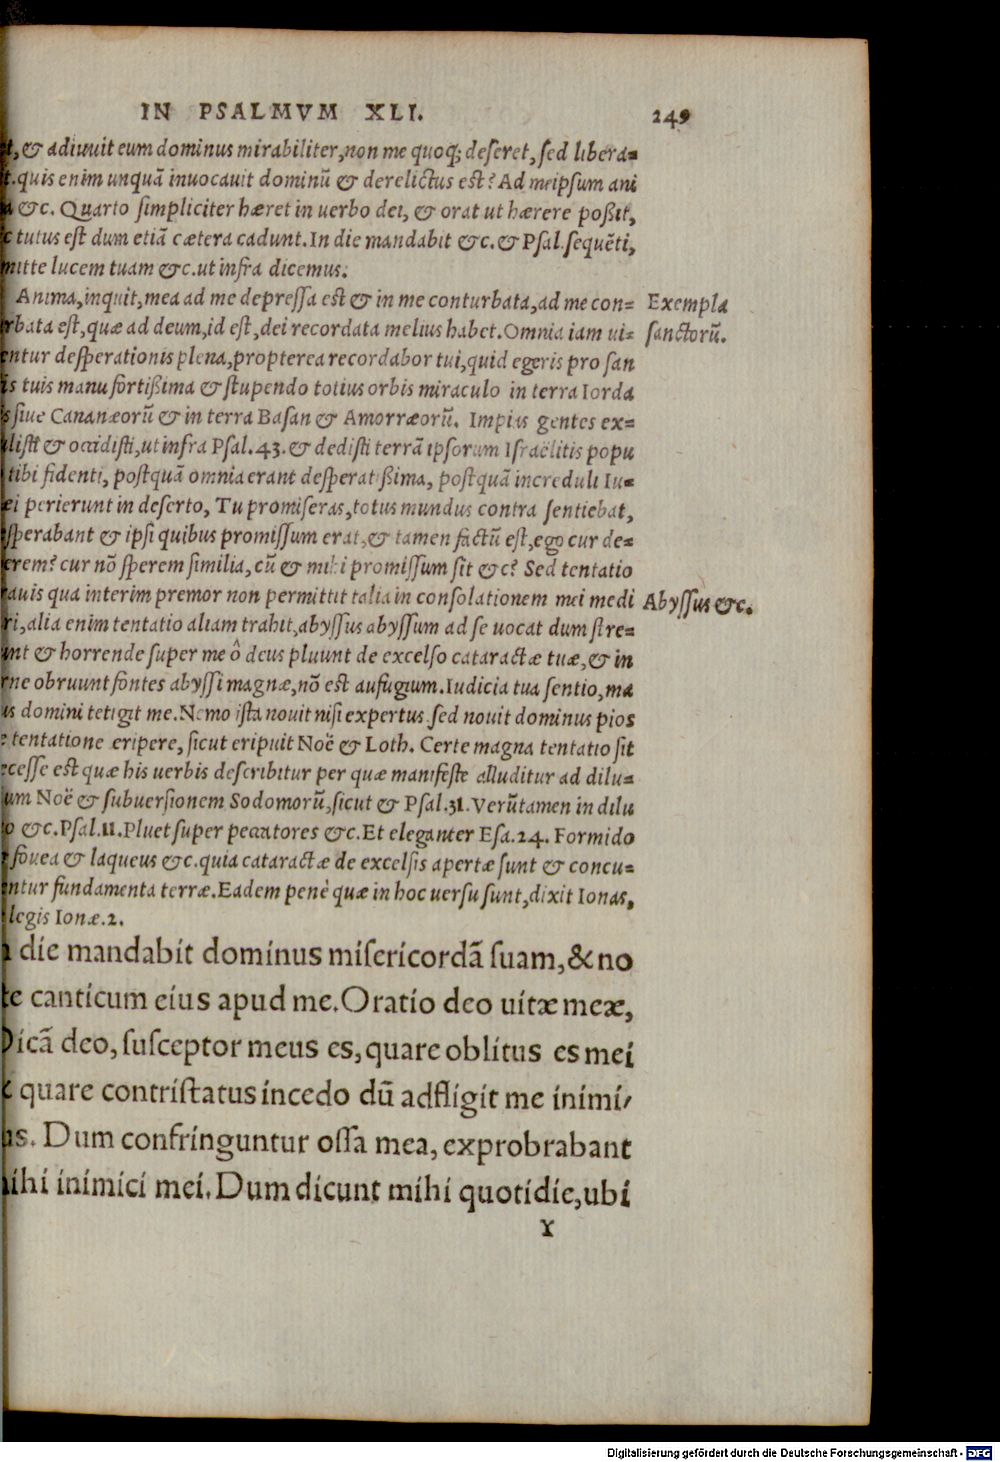 IN PSALMVM XLI. 249
t, & adiuuit eum dominus mirabiliter, non me quoq; deseret, sed libera=
t. quis enim unquā inuocauit dominū & derelictus est? Ad meipsum ani
&c. Quarto simpliciter hæret in uerbo dei, & orat ut hærere poßit,
c tutus est dum etiā cætera cadunt. In die mandabit &c. & Psal. sequēti,
mitte lucem tuam &c. ut infra dicemus.
Anima, inquit, mea ad me depressa est & in me conturbata, ad me con= Exempla
rbata est, quæ ad deum, id est, dei recordata melius habet. Omnia iam ui= sanctorū.
entur desperationis plena, propterea recordabor tui, quid egeris pro san
is tuis manu fortißima & stupendo totius orbis miraculo in terra Iorda
s siue Cananæorū & in terra Basan & Amorræorū. Impias gentes ex=
ulisti & occidisti, ut infra Psal. 43. & dedisti terrā ipsorum Israëlitis popu
tibi fidenti, postquā omnia erant desperatißima, postquā increduli Iu=
æi perierunt in deserto, Tu promiseras, totus mundus contra sentiebat,
sperabant & ipsi quibus promissum erat, & tamen factū est, ego cur de=
erem? cur nō sperem similia, cū & mihi promissum sit &c? Sed tentatio
rauis qua interim premor non permittit talia in consolationem mei medi Abyssus &c.
ri, alia enim tentatio aliam trahit, abyssus abyssum ad se uocat dum stre=
unt & horrende super me ô deus pluunt de excelso cataractæ tuæ, & in
rne obruunt fontes abyssi magnæ, nō est aufugium. Iudicia tua sentio, ma
us domini tetigit me. Nemo ista nouit nisi expertus sed nouit dominus pios
e tentatione eripere, sicut eripuit Noë & Loth. Certe magna tentatio sit
ecesse est quæ his uerbis describitur per quæ manifeste alluditur ad dilu=
ium Noë & subuersionem Sodomorū, sicut & Psal. 31. Verūtamen in dilu
o &c. Psal. 11. Pluet super peccatores &c. Et eleganter Esa. 24. Formido
fouea & laqueus &c. quia cataractæ de excelsis apertæ sunt & concu=
entur fundamenta terræ. Eadem penè quæ in hoc uersu sunt, dixit Ionas,
legis Ionæ. 2.
die mandabit dominus misericordā suam, & no
te canticum eius apud me. Oratio deo uitæ meæ,
Dicā deo, susceptor meus es, quare oblitus es mei
quare contristatus incedo dū adfligit me inimi/
us. Dum confringuntur ossa mea, exprobrabant
ihi inimici mei. Dum dicunt mihi quotidie, ubi
Y
Digitalisierung gefördert durch die Deutsche Forschungsgemeinschaft - DFG